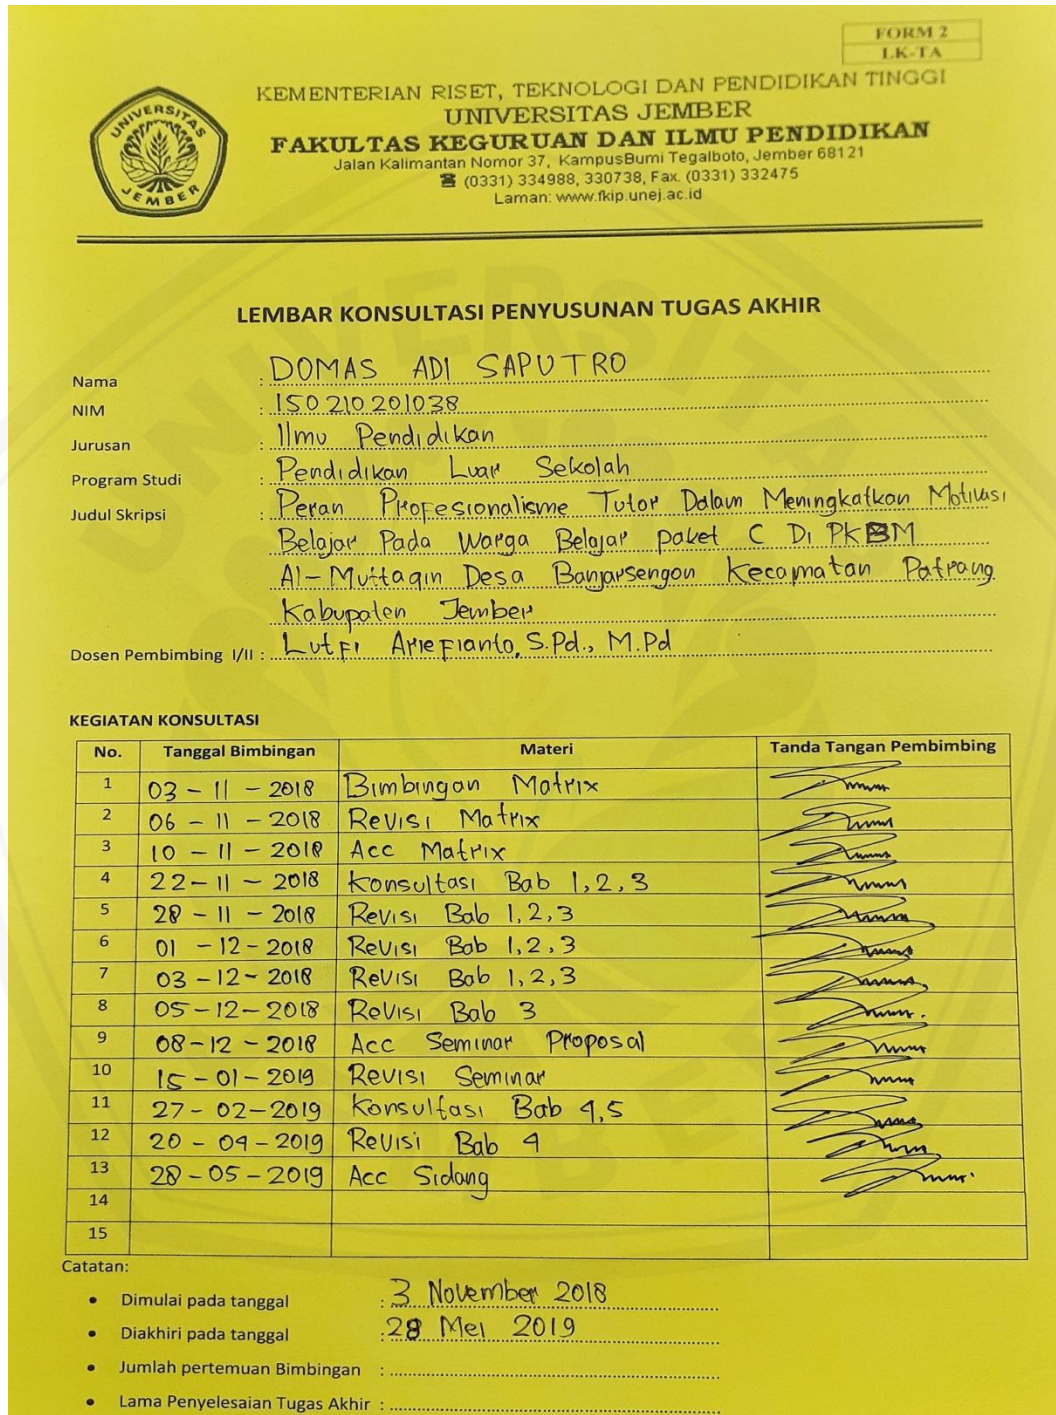 FORM 2
LK-TA
KEMENTERIAN RISET, TEKNOLOGI DAN PENDIDIKAN TINGGI
UNIVERSITAS JEMBER
FAKULTAS KEGURUAN DAN ILMU PENDIDIKAN
Jalan Kalimantan Nomor 37, KampusBumi Tegalboto, Jember 68121
☎ (0331) 334988, 330738, Fax. (0331) 332475
Laman: www.fkip.unej.ac.id
UNIVERSITAS
JEMBER
LEMBAR KONSULTASI PENYUSUNAN TUGAS AKHIR
Nama : DOMAS ADI SAPUTRO
NIM : 150210201038
Jurusan : Ilmu Pendidikan
Program Studi : Pendidikan Luar Sekolah
Judul Skripsi : Peran Profesionalisme Tutor Dalam Meningkatkan Motivasi
Belajar Pada Warga Belajar paket C Di PKBM
Al-Muttaqin Desa Banjarsengon Kecamatan Patrang
Kabupaten Jember
Dosen Pembimbing I/II : Lutfi Ariefianto, S.Pd., M.Pd
KEGIATAN KONSULTASI
No. Tanggal Bimbingan Materi Tanda Tangan Pembimbing
1 03 - 11 - 2018 Bimbingan Matrix
2 06 - 11 - 2018 Revisi Matrix
3 10 - 11 - 2018 Acc Matrix
4 22 - 11 - 2018 Konsultasi Bab 1,2,3
5 28 - 11 - 2018 Revisi Bab 1,2,3
6 01 - 12 - 2018 Revisi Bab 1,2,3
7 03 - 12 - 2018 Revisi Bab 1,2,3
8 05 - 12 - 2018 Revisi Bab 3
9 08 - 12 - 2018 Acc Seminar Proposal
10 15 - 01 - 2019 Revisi Seminar
11 27 - 02 - 2019 Konsultasi Bab 4,5
12 20 - 04 - 2019 Revisi Bab 4
13 28 - 05 - 2019 Acc Sidang
14
15
Catatan:
• Dimulai pada tanggal : 3 November 2018
• Diakhiri pada tanggal : 28 Mei 2019
• Jumlah pertemuan Bimbingan :
• Lama Penyelesaian Tugas Akhir :